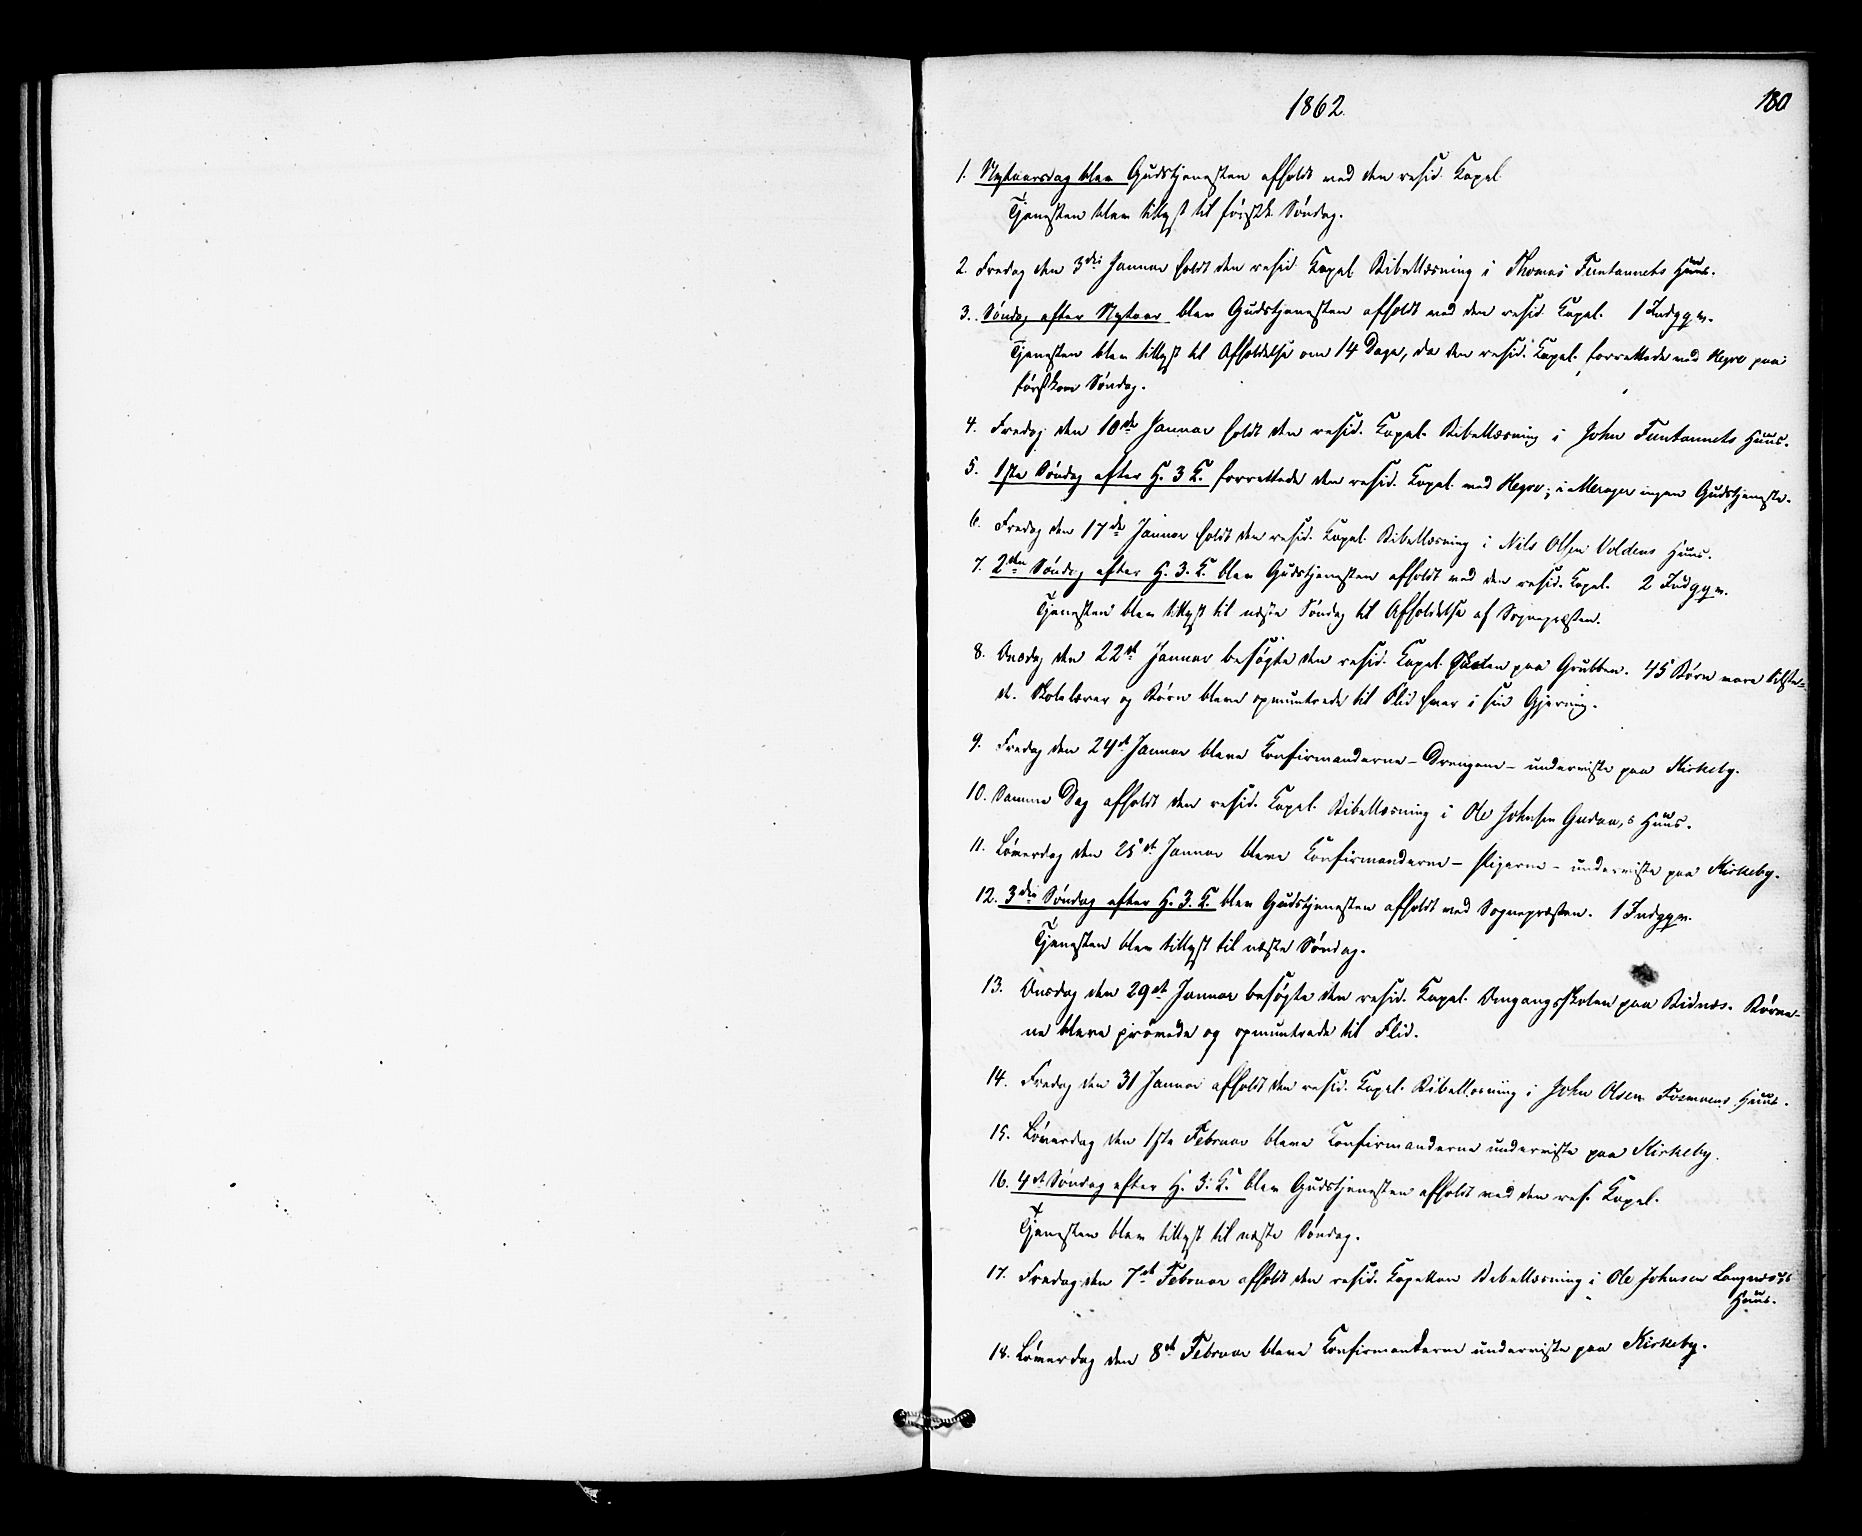 1862.
180
1. Nytaarsdag blev Gudstjenesten afholdt ved den resid. Kapel.
Tjenesten blev tillyst til førstk. Søndag.
2. Fredag den 3die Januar holdt den resid. Kapel. Bibellæsning i Thomas Funtaunets Huus.
3. Søndag efter Nytaar blev Gudstjenesten afholdt ved den resid. Kapel. 1 Indggv.
Tjenesten blev tillyst til Afholdelse om 14 Dage, da den resid. Kapel. forrettede ved Hegre paa
førstkom Søndag.
4. Fredag den 10de Januar holdt den resid. Kapel. Bibellæsning i John Funtaunets Huus.
5. 1ste Søndag efter H. 3 K. forrettede den resid. Kapel. ved Hegre; i Merager ingen Gudstjeneste.
6. Fredag den 17de Januar holdt den resid. Kapel. Bibellæsning i Nils Olsen Voldens Huus.
7. 2den Søndag efter H. 3. K. blev Gudstjenesten afholdt ved den resid. Kapel. 2 Indggv.
Tjenesten blev tillyst til næste Søndag til Afholdelse af Sognepræsten.
8. Onsdag den 22de Januar besøgte den resid. Kapel. Skolen paa Grubben. 45 Børn vare tilste-
de. Skolelærer og Børn bleve opmuntrede til Flid hver i sin Gjerning.
9. Fredag den 24de Januar bleve Konfirmanderne - Drengene - underviste paa Kirkeby.
10. Samme Dag afholdt den resid. Kapel. Bibellæsning i Ole Johnsen Gudaa,s Huus.
11. Løverdag den 25de Januar bleve Konfirmanderne - Pigerne - underviste paa Kirkeby.
12. 3die Søndag efter H. 3. K. blev Gudstjenesten afholdt ved Sognepræsten. 1 Indggv.
Tjenesten blev tillyst til næste Søndag.
13. Onsdag den 29de Januar besøgte den resid. Kapel. Omgangsskolen paa Bidnæs. Børne-
ne bleve prøvede og opmuntrede til Flid.
14. Fredag den 31 Januar afholdt den resid. Kapel. Bibellæsning i John Olsen Huus.
15. Løverdag den 1ste Februar bleve Konfirmanderne underviste paa Kirkeby.
16. 4de Søndag efter H. 3. K. blev Gudstjenesten afholdt ved den res. Kapel.
Tjenesten blev tillyst til næste Søndag.
17. Fredag den 7de Februar afholdt den resid. Kapellan Bibellæsning i Ole Johnsen Langnæs,s
Huus.
18. Løverdag den 8de Februar bleve Konfirmanderne underviste paa Kirkeby.